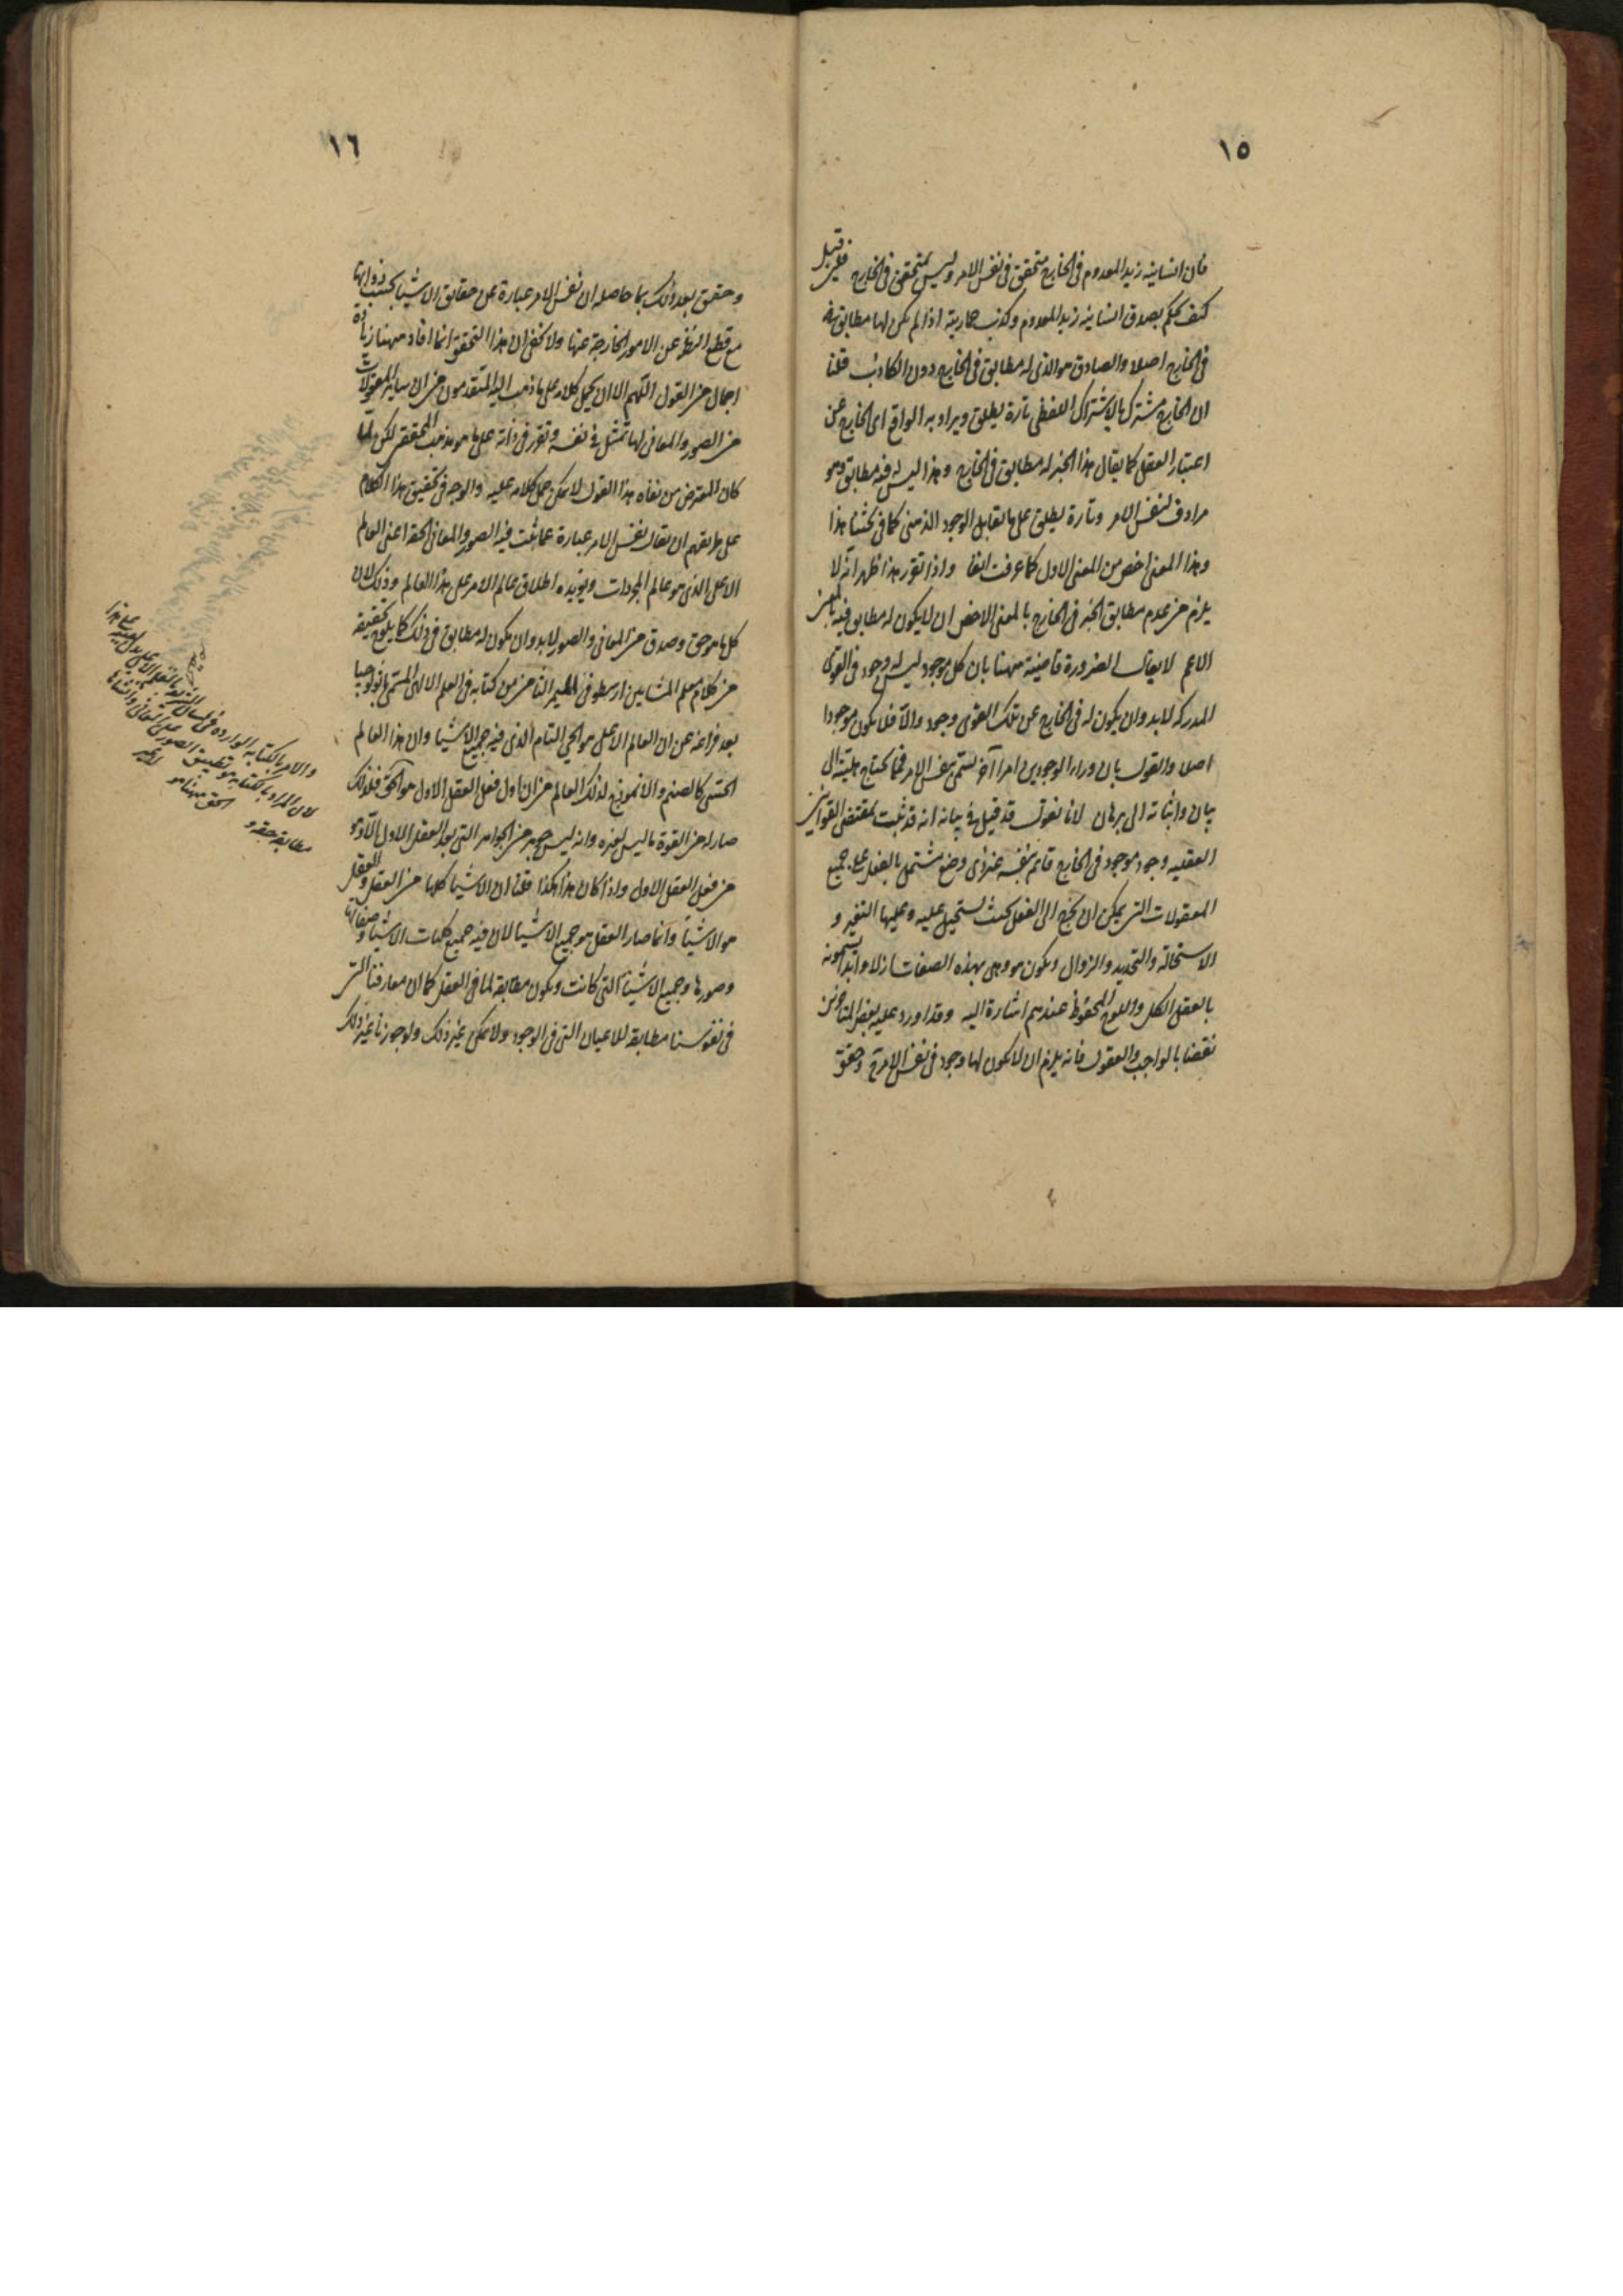 ١٥
فان انسانية زيد المعدوم في الخارج متحقق في نفس الامر وليس بمتحقق في الخارج فلئن قيل
كيف يحكم بصدق انسانية زيد المعدوم وكذب حماريته اذا لم يكن لها مطابق
في الخارج اصلا والصادق هو الذي له مطابق في الخارج دون الكاذب قلنا
ان الخارج مشترك بالاشتراك اللفظي تارة يطلق ويراد به الواقع اي الخارج عن
اعتبار العقل كما يقال هذا الخبر له مطابق في الخارج وهذا ليس له فيه مطابق وهو
مرادف لنفس الامر وتارة يطلق على ما يقابل الوجود الذهني كما في بحثنا هذا
وهذا المعنى اخص من المعنى الاول كما عرفت انفا واذا تقرر هذا ظهر انه لا
يلزم من عدم مطابق الخبر في الخارج بالمعنى الاخص ان لا يكون له مطابق فيه بالمعنى
الاعم لا يقال الضرورة قاضية ههنا بان كل موجود ليس له وجود في القوى
المدركة لابد وان يكون له في الخارج عن تلك القوى وجود والا فلا يكون موجودا
اصلا والقول بان وراء الوجودين امرا آخر يسمى نفس الامر فمما يحتاج هليته الى
بيان واثباته الى برهان لانا نقول قد قيل في بيانه انه قد ثبت بمقتضى القوانين
العقليه وجود موجود في الخارج قائم بنفسه غير ذي وضع مشتمل بالفعل على جميع
المعقولات التي يمكن ان يخرج الى الفعل بحيث يستحيل عليه وعليها التغير و
الاستحالة والتجديد والزوال ويكون هو وهي بهذه الصفات ازلا وابدا يسمونه
بالعقل الكل واللوح المحفوظ عندهم اشارة اليه وقد اورد عليه بعض المتاخرين
نقضا بالواجب والعقول فانه يلزم ان لا يكون لها وجود في نفس الامر ح وحقق
١٦
وحقق بعد ذلك بما حاصله ان نفس الامر عبارة عن حقايق الاشيا بحسب ذواتها
مع قطع النظر عن الامور الخارجة عنها ولا يخفى ان هذا التحقق انما افاد ههنا زيادة
اجمال من القول اللهم الا ان يحمل كلامه على ما ذهب اليه المتقدمون من ان ساير المعقولات
من الصور والمعاني لها تمثل في نفسه وتقرر في ذاته على ما هو مذهب المحققين لكن لما
كان المعترض من نفاه هذا القول لا يمكن حمل كلامه عليه والوجه في تحقيق هذا الكلام
على طريقهم ان يقال نفس الامر عبارة عما ثبت فيه الصور والمعاني الحقة اعني العالم
الاعلى الذي هو عالم المجردات ويؤيده اطلاق عالم الامر على هذا العالم وذلك لان
كل ما هو حق وصدق من المعاني والصور لابد وان يكون له مطابق في ذلك كما يلوح تحقيقه
من كلام معلم المشايين ارسطو في الميمر الثامن من كتابه في العلم الالهى المسمى باثولوجيا
بعد فراغه عن ان العالم الاعلى هو الحي التام الذي فيه جميع الاشيا وان هذا العالم
الحسي كالصنم والانموذج لذلك العالم من ان اول فعل العقل الاول هو الحق فلذلك
صار له من القوة ما ليس لغيره وانه ليس جوهر من الجواهر التي بعد العقل الاول الا وهو
من فعل العقل الاول واذا كان هذا هكذا قلنا ان الاشيا كلها من العقل والعقل
هو الاشيا وانما صار العقل هو جميع الاشيا لان فيه جميع كليات الاشيا وصفاتها
وصورها وجميع الاشيا التي كانت ويكون مطابقة لما في العقل كما ان معارفنا التي
في نفوسنا مطابقة للاعيان التي في الوجود ولا يمكن غير ذلك ولو جوزنا غير ذلك
والامر بالكتابه الوارده في لسان بالقلم الاعلى على هذا
لان المراد بالكتابه هو تطبيق الصور
الحق ههنا هو
مطابقة